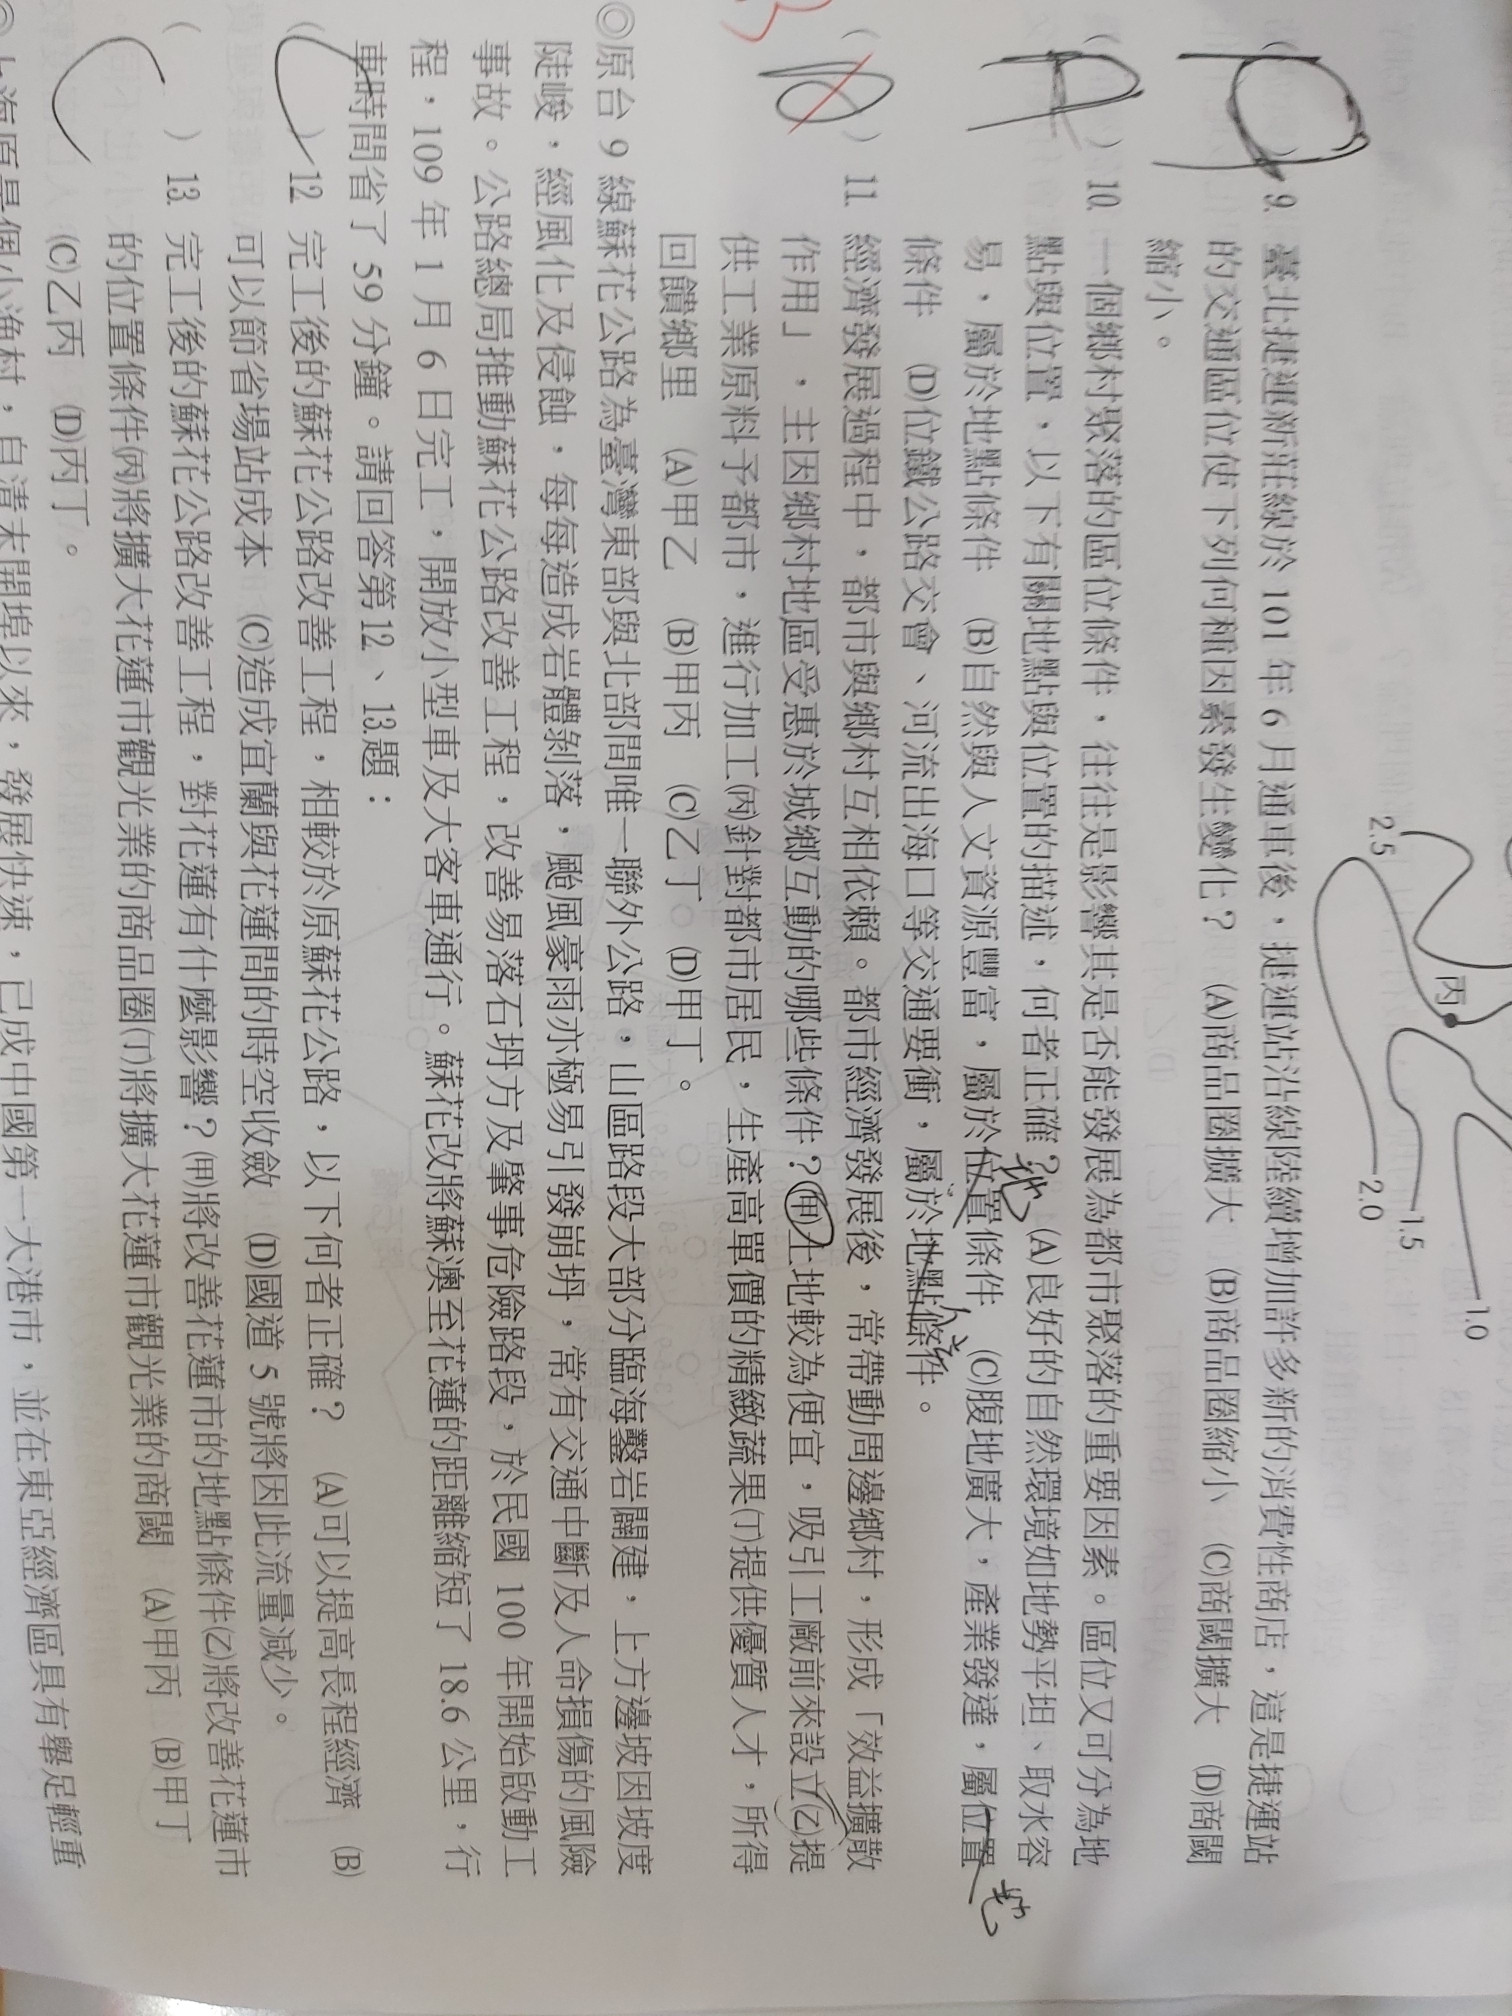 2.5
丙
2.0
1.5
1.0
A
( ) 9. 臺北捷運新莊線於 101 年 6 月通車後，捷運站沿線陸續增加許多新的消費性商店，這是捷運站
的交通區位使下列何種因素發生變化？ (A)商品圈擴大 (B)商品圈縮小 (C)商閾擴大 (D)商閾
縮小。
A
( ) 10. 一個鄉村聚落的區位條件，往往是影響其是否能發展為都市聚落的重要因素。區位又可分為地
點與位置，以下有關地點與位置的描述，何者正確？ (A)良好的自然環境如地勢平坦、取水容
易，屬於地點條件 (B)自然與人文資源豐富，屬於位置條件 (C)腹地廣大，產業發達，屬位置
地
地
條件 (D)位鐵公路交會、河流出海口等交通要衝，屬於地點條件。
( ) 11. 經濟發展過程中，都市與鄉村互相依賴。都市經濟發展後，常帶動周邊鄉村，形成「效益擴散
作用」，主因鄉村地區受惠於城鄉互動的哪些條件？(甲)土地較為便宜，吸引工廠前來設立(乙)提
供工業原料予都市，進行加工(丙)針對都市居民，生產高單價的精緻蔬果(丁)提供優質人才，所得
回饋鄉里 (A)甲乙 (B)甲丙 (C)乙丁 (D)甲丁。
◎原台 9 線蘇花公路為臺灣東部與北部間唯一聯外公路，山區路段大部分臨海鑿岩闢建，上方邊坡因坡度
陡峻，經風化及侵蝕，每每造成岩體剝落，颱風豪雨亦極易引發崩坍，常有交通中斷及人命損傷的風險
事故。公路總局推動蘇花公路改善工程，改善易落石坍方及肇事危險路段，於民國 100 年開始啟動工
程，109 年 1 月 6 日完工，開放小型車及大客車通行。蘇花改將蘇澳至花蓮的距離縮短了 18.6 公里，行
車時間省了 59 分鐘。請回答第12、13題：
C
( ) 12. 完工後的蘇花公路改善工程，相較於原蘇花公路，以下何者正確？ (A)可以提高長程經濟 (B)
可以節省場站成本 (C)造成宜蘭與花蓮間的時空收斂 (D)國道 5 號將因此流量減少。
( ) 13. 完工後的蘇花公路改善工程，對花蓮有什麼影響？(甲)將改善花蓮市的地點條件(乙)將改善花蓮市
C
的位置條件(丙)將擴大花蓮市觀光業的商品圈(丁)將擴大花蓮市觀光業的商閾 (A)甲丙 (B)甲丁
(C)乙丙 (D)丙丁。
◎上海原是個小漁村，自清末開埠以來，發展快速，已成中國第一大港市，並在東亞經濟區具有舉足輕重